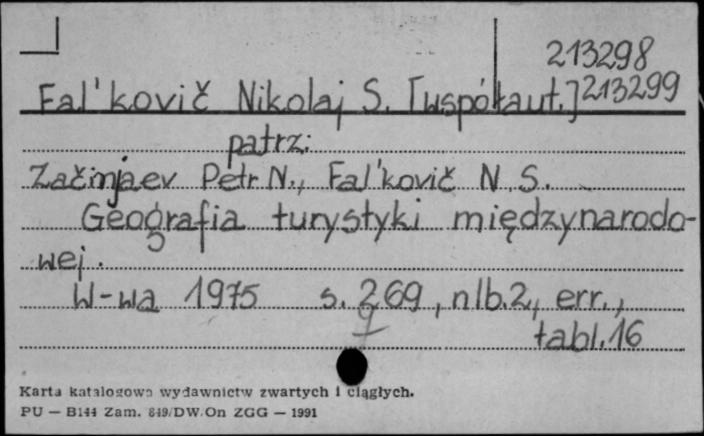 213298
Fal'kovič Nikolaj S. [współaut.] 213299
patrz:
Začinjaev Petr N., Fal'kovič N. S.
Geografia turystyki międzynarodo-
wej.
W-wa 1975 s. 269, nlb. 2, err.,
tabl. 16
Karta katalogowa wydawnictw zwartych i ciągłych.
PU — B144 Zam. 849/DW.On ZGG — 1991